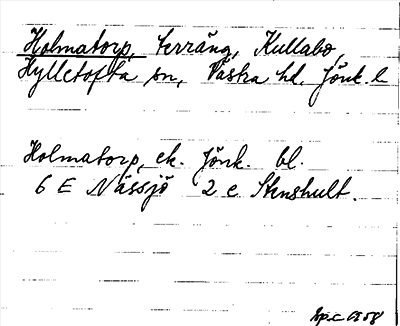 Holmatorp, terräng, Kullabo,
Hylletofta sn, Västra hd. Jönk. l
Holmatorp, ek. Jönk. bl.
6 E Nässjö 2 e Stenshult.